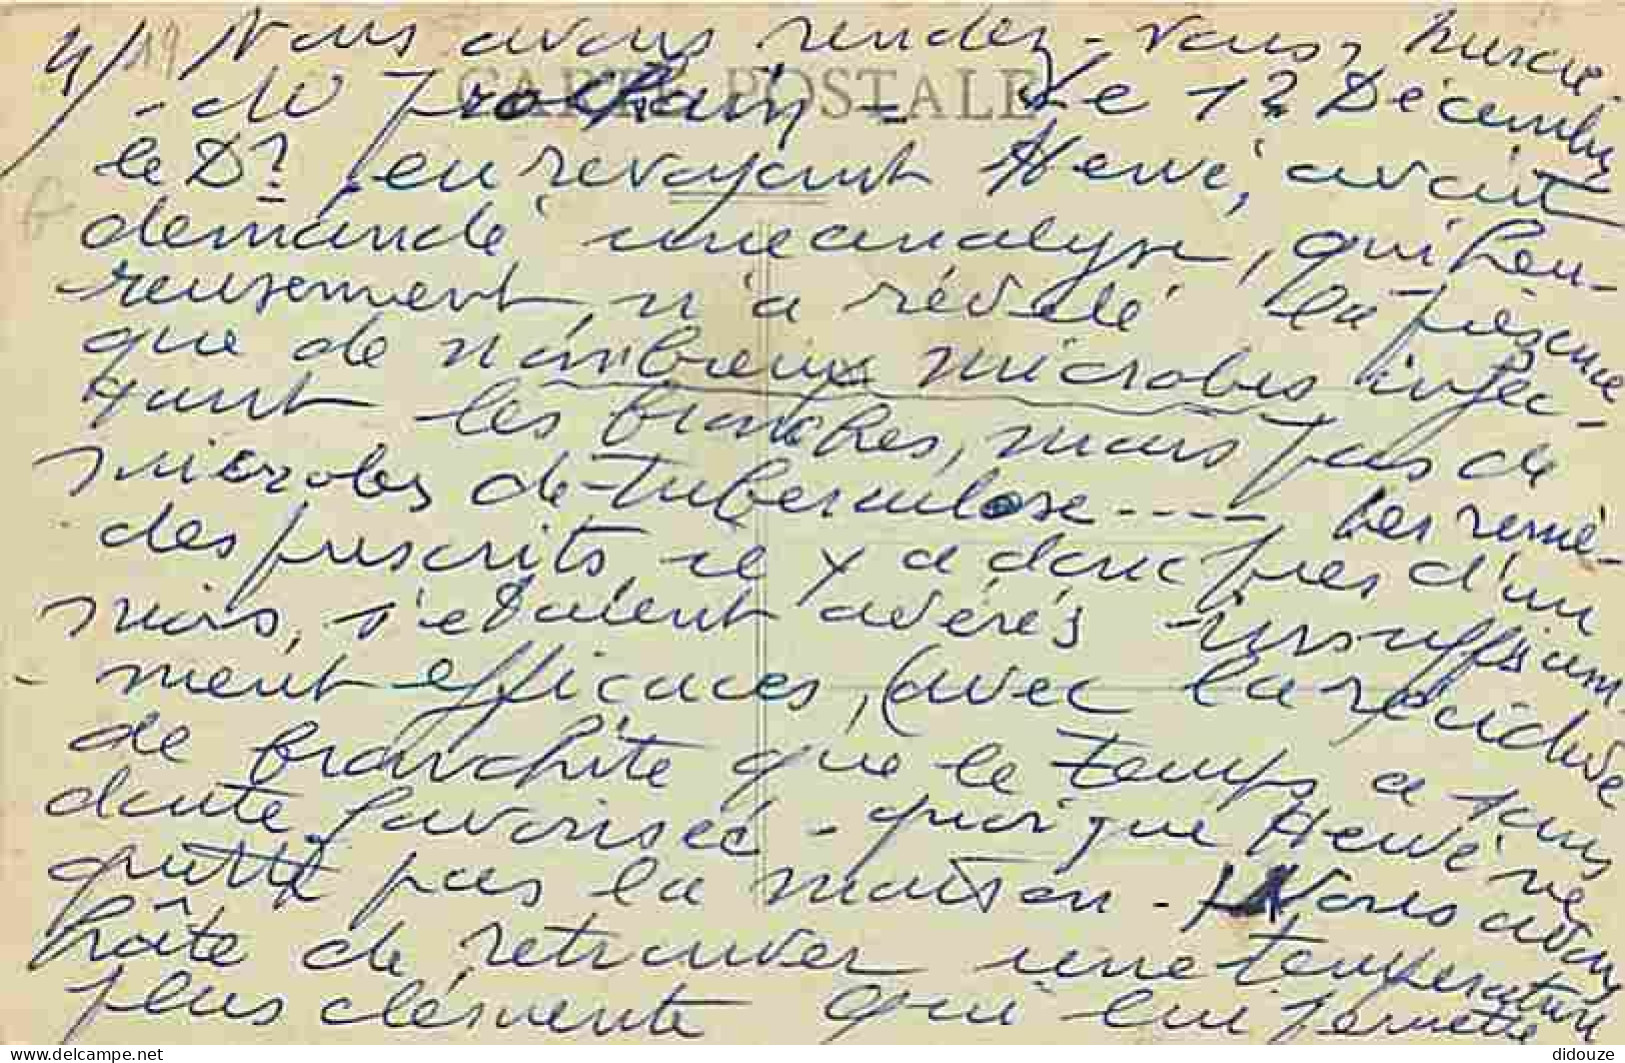 4/ 19 Nous avons rendez-vous, mercre-
CARTE POSTALE
-di prochain - Le 12 Décembre
le Dr, en revoyant Hervé, avait
demandé une analyse, qui heu-
reusement, n'a révélé la présence
que de nombreux microbes infec-
tant les bronches, mais pas de
microbes de tuberculose ---- Les remè-
des prescrits il y a donc près d'un
mois, s'étaient avérés insuffisam-
ment efficaces, (avec la récidive
de bronchite que le temps a sans
doute favorisée - quoique Hervé ne
quitte pas la maison - Nous avons
hâte de retrouver une température
plus clémente qui lui permette
didouze